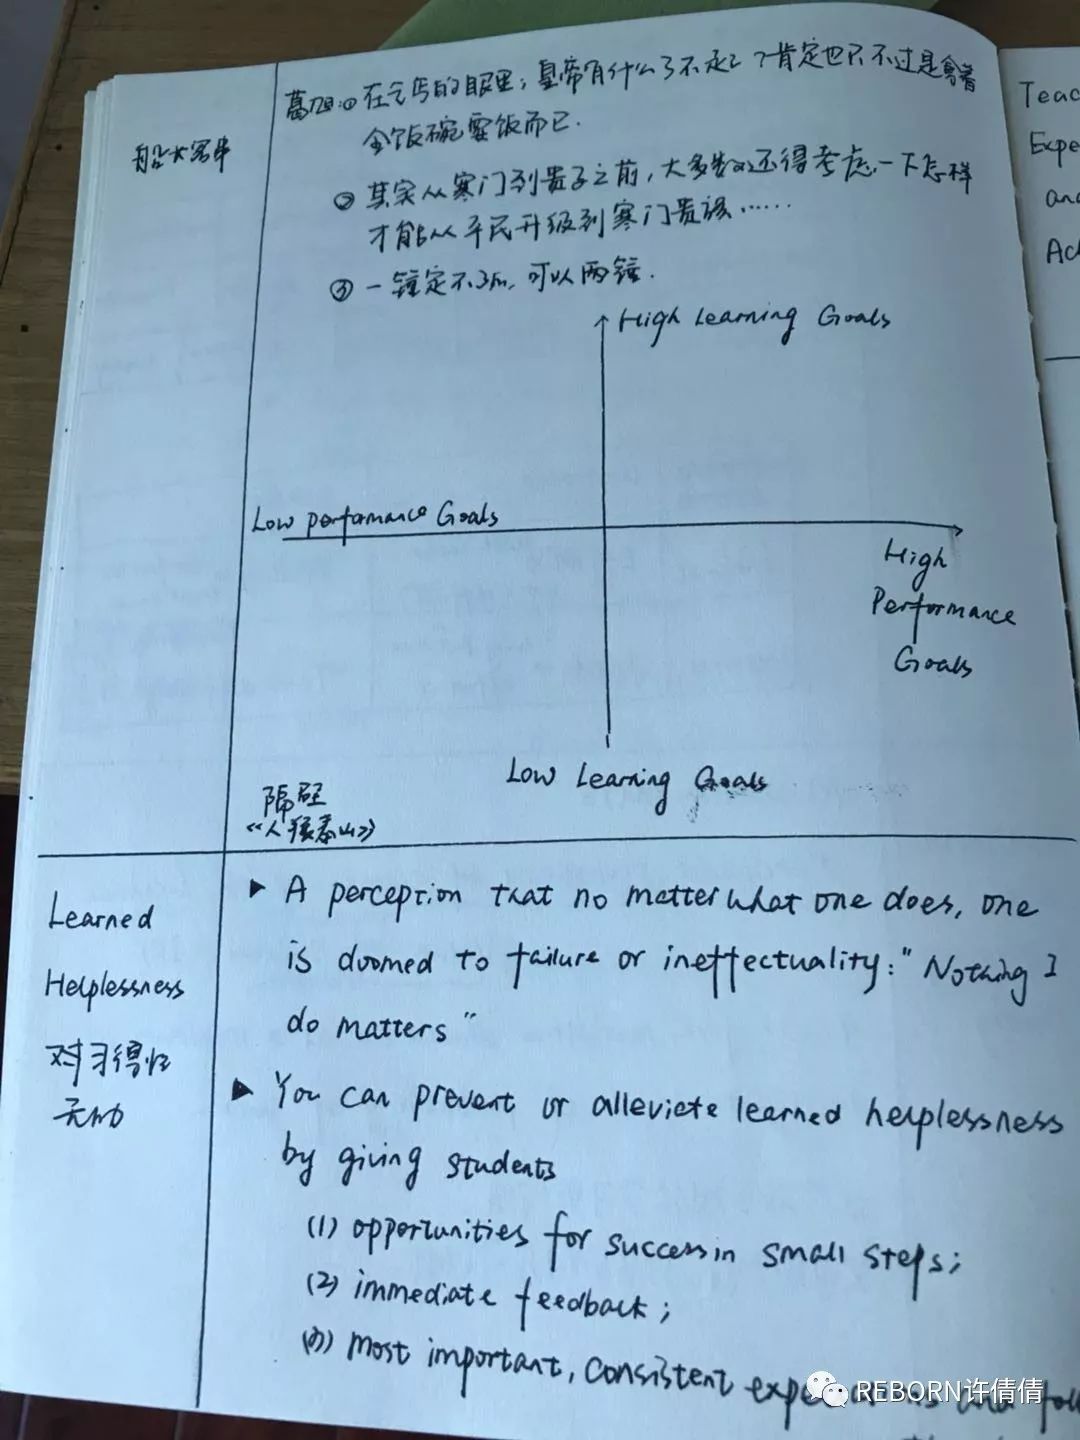 葛旭:① 在乞丐的眼里,皇帝有什么了不起?肯定也只不过是拿着
金饭碗要饭而已.
船长客串
② 其实从寒门到贵子之前,大多数还得考虑一下怎样
才能从平民升级到寒门贵族……
③ 一锤定不了,可以两锤.
High Learning Goals
Low performance Goals
High
Performance
Goals
Low Learning Goals
隔壁
《人猿泰山》
Learned
Helplessness
对习得性
无助
▶ A perception that no matter what one does, one
is doomed to failure or ineffectuality: "Nothing I
do matters"
▶ You can prevent or alleviete learned helplessness
by giving students
(1) opportunities for success in small steps;
(2) immediate feedback;
(3) most important, consistent
Teac
Expe
and
Ac
REBORN许倩倩